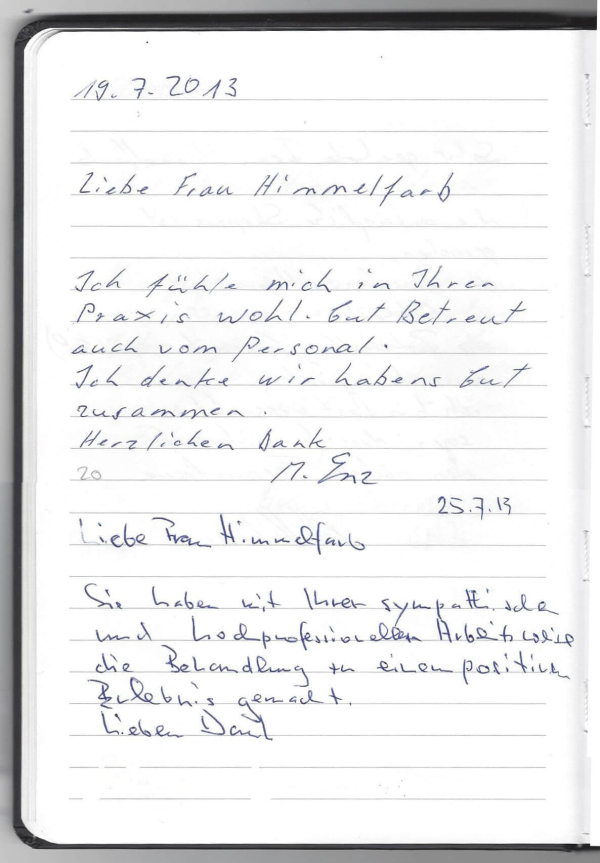 19.7.2013
Liebe Frau Himmelfarb
Ich fühle mich in Ihren
Praxis wohl. Gut Betreut
auch vom Personal.
Ich denke wir habens Gut
zusammen.
Herzlichen Dank
20 M. Enz
25.7.13
Liebe Frau Himmelfarb
Sie haben mit Ihrer sympathische
und hochprofessionellen Arbeitsweise
die Behandlung zu einem positiven
Erlebnis gemacht.
Lieben Dank